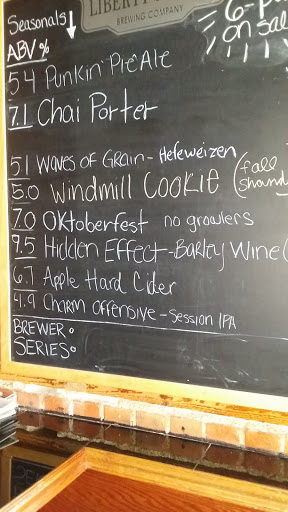 Seasonals ↓
LIBERTY
BREWING COMPANY
6-P
on sal
ABV %
5.4 Punkin' Pie Ale
7.1 Chai Porter
5.1 Waves of Grain - Hefeweizen
5.0 Windmill Cookie (fall
shand
7.0 Oktoberfest no growlers
9.5 Hidden Effect - Barley Wine (
6.7 Apple Hard Cider
4.9 Charm Offensive - Session IPA
BREWER:
SERIES: